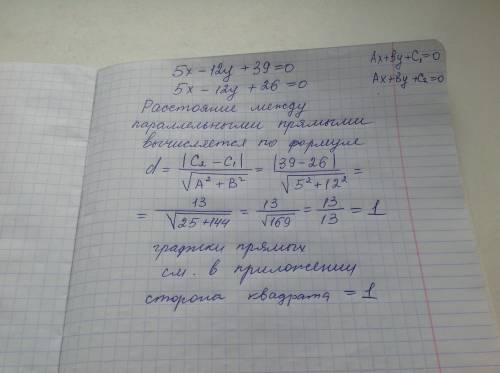 5x − 12y + 39 = 0
Ax + By + C₁ = 0
5x − 12y + 26 = 0
Ax + By + C₂ = 0
Расстояние между
параллельными прямыми
вычисляется по формуле
d = |C₂ − C₁| / √(A² + B²) = |39 − 26| / √(5² + 12²) =
= 13 / √(25 + 144) = 13 / √169 = 13 / 13 = 1
графики прямых
см. в приложении
сторона квадрата = 1